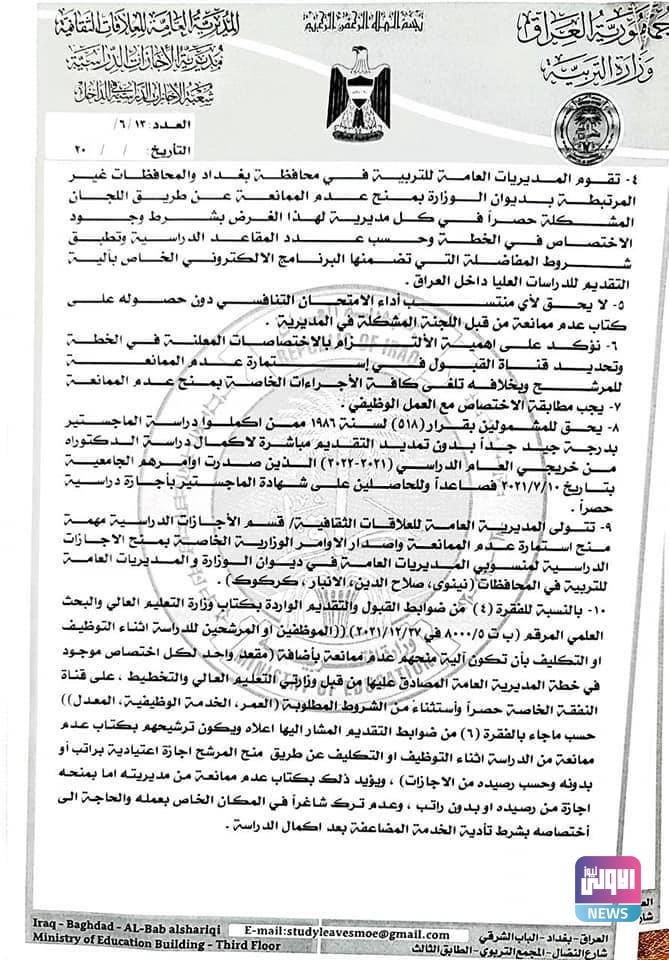 بسم الله الرحمن الرحيم
جمهورية العراق
وزارة التربية
المديرية العامة للعلاقات الثقافية
مديرية الاجازات الدراسية
شعبة الاجازات الدراسية في الداخل
العدد: ١٣/ ٦/
التأريخ: / / ٢٠
٤- تقوم المديريات العامة للتربية في محافظة بغداد والمحافظات غير
المرتبطة بديوان الوزارة بمنح عدم الممانعة عن طريق اللجان
المشكلة حصراً في كل مديرية لهذا الغرض بشرط وجود
الاختصاص في الخطة وحسب عدد المقاعد الدراسية وتطبق
شروط المفاضلة التي تضمنها البرنامج الالكتروني الخاص بآلية
التقديم للدراسات العليا داخل العراق.
٥- لا يحق لأي منتسب أداء الامتحان التنافسي دون حصوله على
كتاب عدم ممانعة من قبل اللجنة المشكلة في المديرية .
٦- نؤكد على اهمية الألتزام بالاختصاصات المعلنة في الخطة
وتحديد قناة القبول في إستمارة عدم الممانعة
للمرشح وبخلافه تلغى كافة الأجراءات الخاصة بمنح عدم الممانعة
٧- يجب مطابقة الاختصاص مع العمل الوظيفي .
٨- يحق للمشمولين بقرار (٥١٨) لسنة ١٩٨٦ ممن اكملوا دراسة الماجستير
بدرجة جيد جداً بدون تمديد التقديم مباشرة لاكمال دراسة الدكتوراه
من خريجي العام الدراسي (٢٠٢١-٢٠٢٢) الذين صدرت اوامرهم الجامعية
بتاريخ ٢٠٢١/٧/١٠ فصاعداً وللحاصلين على شهادة الماجستير بأجازة دراسية
حصراً .
٩- تتولى المديرية العامة للعلاقات الثقافية/ قسم الأجازات الدراسية مهمة
منح استمارة عدم الممانعة واصدار الاوامر الوزارية الخاصة بمنح الاجازات
الدراسية لمنسوبي المديريات العامة في ديوان الوزارة و المديريات العامة
للتربية في المحافظات (نينوى، صلاح الدين، الانبار ، كركوك) .
١٠- بالنسبة للفقرة (٤) من ضوابط القبول والتقديم الواردة بكتاب وزارة التعليم العالي والبحث
العلمي المرقم (ب ت ٨٠٠٠/٥ في ٢٠٢١/١٢/٢٧) ((الموظفين او المرشحين للدراسة اثناء التوظيف
او التكليف بأن تكون آلية منحهم عدم ممانعة بأضافة (مقعد واحد لكل اختصاص موجود
في خطة المديرية العامة المصادق عليها من قبل وزارتي التعليم العالي والتخطيط ، على قناة
النفقة الخاصة حصراً وأستثناءً من الشروط المطلوبة (العمر، الخدمة الوظيفية، المعدل))
حسب ماجاء بالفقرة (٦) من ضوابط التقديم المشار اليها اعلاه ويكون ترشيحهم بكتاب عدم
ممانعة من الدراسة اثناء التوظيف او التكليف عن طريق منح المرشح اجازة اعتيادية براتب أو
بدونه وحسب رصيده من الاجازات) ، ويؤيد ذلك بكتاب عدم ممانعة من مديريته اما بمنحه
اجازة من رصيده او بدون راتب ، وعدم ترك شاغراً في المكان الخاص بعمله والحاجة الى
أختصاصه بشرط تأدية الخدمة المضاعفة بعد اكمال الدراسة .
REPUBLIC OF IRAQ
الاولى نيوز
NEWS
Iraq - Baghdad - AL-Bab alsharqi
Ministry of Education Building - Third Floor
E-mail:studyleavesmoe@gmail.com
العراق - بغداد - الباب الشرقي
شارع النضال - المجمع التربوي - الطابق الثالث